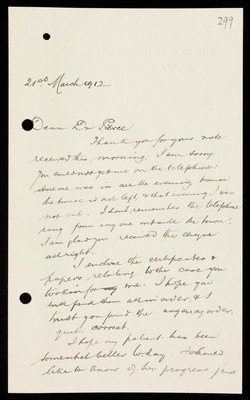 299
21st March 1912
Dear Dr Pierce
Thank you for your note
received this morning. I am sorry
you could not get me on the telephone:
some one was in all the evening
the house is not left, & that evening I was
not out. I dont remember the telephone
rang from any one outside the house.
I am glad you received the cheque
all right.
I enclose the certificates &
papers relating to the case you
took in for me. I hope you
will find them all in order & I
trust you found the
quite correct.
I hope my patient has been
somewhat better today. I should
like to know of her progress